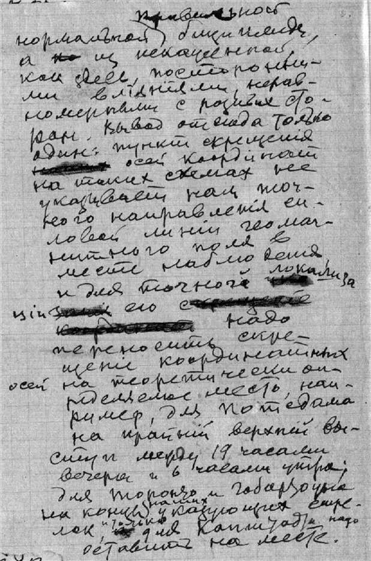 нормальной
а из искаженной,
как здесь, посторонни-
ми влияніями, нерав-
номерными с разных сто-
рон. Вывод отсюда только
один: пункт скрещенія
осей координат
на таких схемах не
указывает нам точ-
ного направленія си-
ловой линіи геомаг-
нитного поля в
месте наблюденія
и для точной локализа
ціи его надо
переносить скре-
щеніе координатных
осей на теоретически оп-
ределяемое место, нап-
ример, для Потсдама
на крайній верхній вы-
ступ между 19 часами
вечера и 6 часами утра;
для Торонто и
на концы указующих стре-
лок, и только для Капштадта надо
оставить на месте.